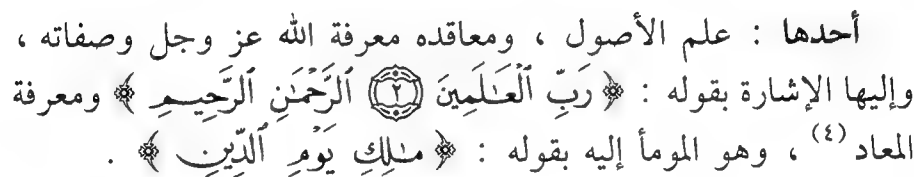 أحدها : علم الأصول ، ومعاقده معرفة الله عز وجل وصفاته ،
وإليها الإشارة بقوله : ﴿ رَبِّ ٱلْعَـٰلَمِينَ ۝٢ ٱلرَّحْمَـٰنِ ٱلرَّحِيـمِ ﴾ ومعرفة
المعاد (٤) ، وهو المومأ إليه بقوله : ﴿ مَـٰلِكِ يَوْمِ ٱلدِّينِ ﴾ .